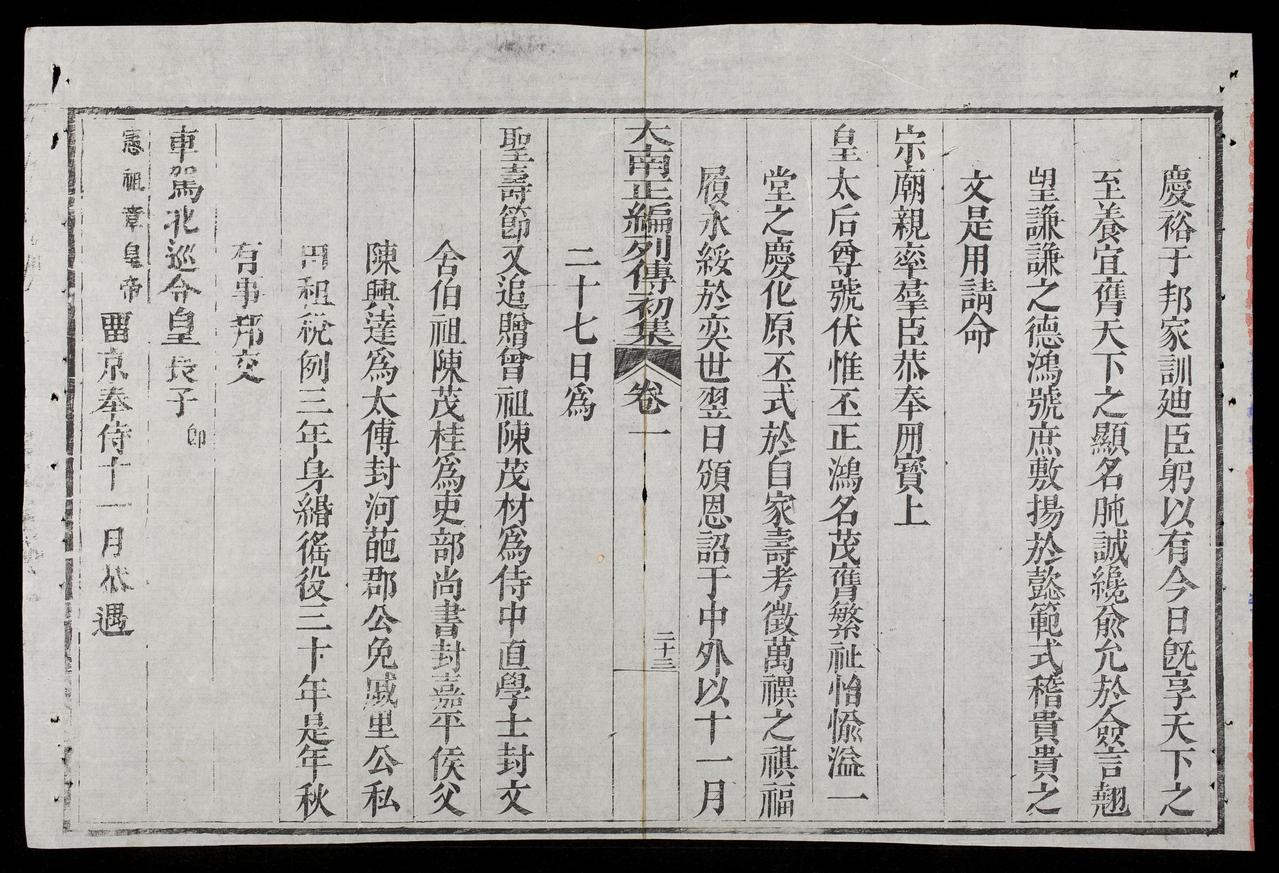 慶裕于邦家訓廸臣躬以有今日旣享天下之
至養宜膺天下之顯名肫誠纔兪允於僉言翹
望謙謙之德鴻號庶敷揚於懿範式稽貴貴之
文是用請命
宗廟親率羣臣恭奉冊寶上
皇太后尊號伏惟丕正鴻名茂膺繁祉怡愉溢一
堂之慶化原丕式於自家壽考徵萬禩之祺福
履永綏於奕世翌日頒恩詔于中外以十一月
大南正編列傳初集 卷一 二十三
二十七日爲
聖壽節又追贈曾祖陳茂材爲侍中直學士封文
舍伯祖陳茂桂爲吏部尚書封嘉平侯父
陳興達爲太傅封河葩郡公免戚里公私
田租稅例三年身緡徭役三十年是年秋
有事邦交
車駕北巡令皇長子卽
憲祖章皇帝畱京奉侍十一月恭遇